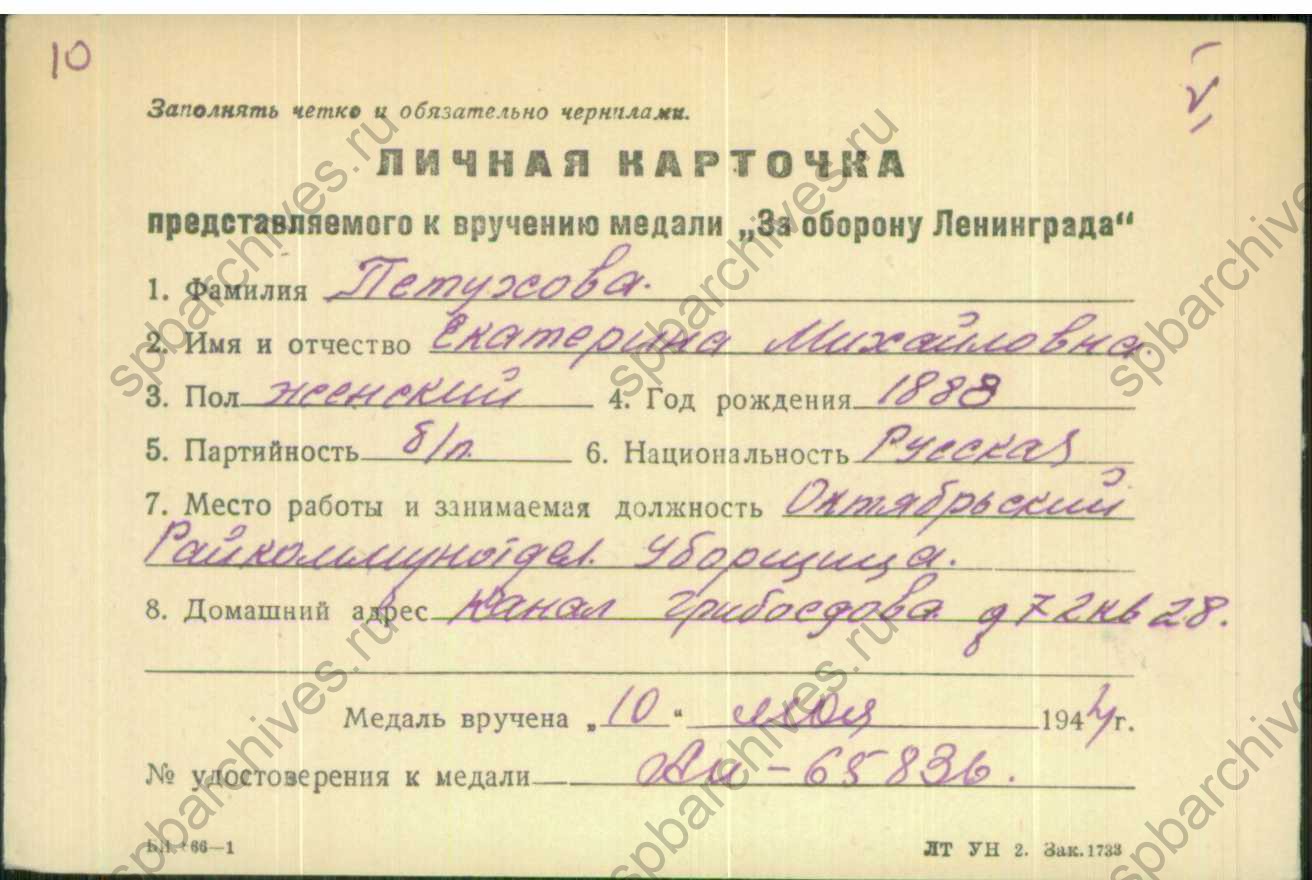 10
Заполнять четко и обязательно чернилами.
ЛИЧНАЯ КАРТОЧКА
представляемого к вручению медали „За оборону Ленинграда“
1. Фамилия Петухова.
2. Имя и отчество Екатерина Михайловна.
3. Пол женский 4. Год рождения 1888
5. Партийность б/п. 6. Национальность Русская
7. Место работы и занимаемая должность Октябрьский
Райкоммунотдел. Уборщица.
8. Домашний адрес Канал Грибоедова д 72 кв 28.
Медаль вручена „10“ 1944 г.
№ удостоверения к медали — 65836.
66—1
ЛТ УН 2. Зак. 1733
spbarchives.ru